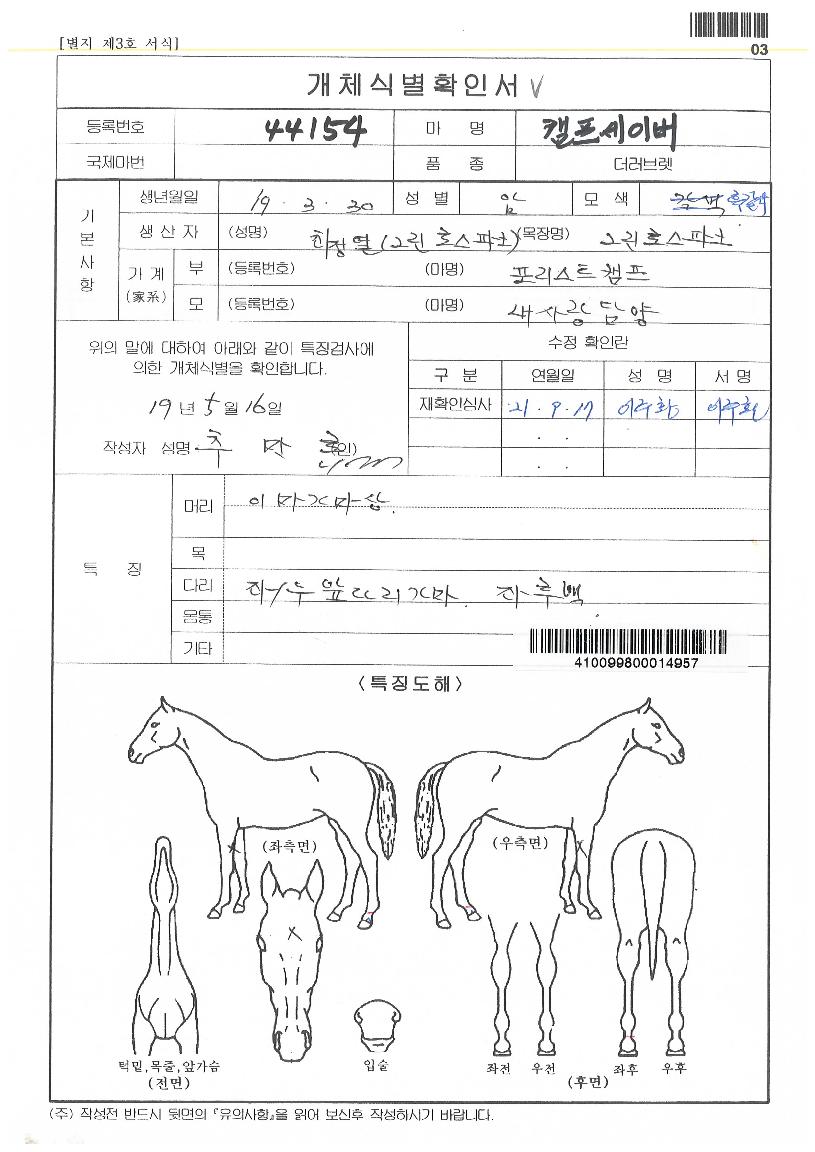 [별지 제3호 서식]
03
개체식별확인서 V
등록번호 44154 마 명 캠프세이버
국제마번 품 종 더러브렛
기본사항
생년월일 19 . 3 . 30 성 별 암 모 색 갈색 흑갈색
생 산 자 (성명) 최정열(그린호스파크) (목장명) 그린호스파크
가 계 (家系)
부 (등록번호) (마명) 포리스트캠프
모 (등록번호) (마명) 새사랑담양
위의 말에 대하여 아래와 같이 특징검사에
의한 개체식별을 확인합니다.
19 년 5 월 16 일
작성자 성명 추 (인)
수정 확인란
구 분 연월일 성 명 서 명
재확인심사 21 . 9 . 17 이주환 이주환
. .
. .
특 징
머리 이마가마상.
목
다리 좌우앞다리가마. 좌후백
몸통
기타
410099800014957
〈특징도해〉
(좌측면) (우측면)
턱밑,목줄,앞가슴
(전면)
입술
좌전 우전 좌후 우후
(후면)
(주) 작성전 반드시 뒷면의 『유의사항』을 읽어 보신후 작성하시기 바랍니다.